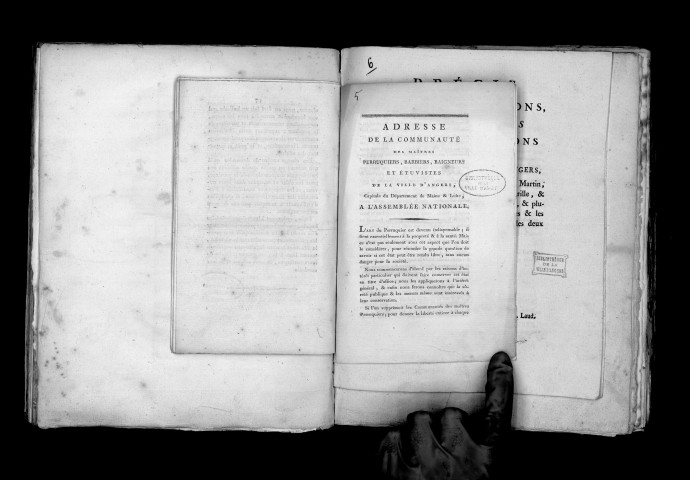 6
5
ADRESSE
DE LA COMMUNAUTÉ
DES MAÎTRES
PERRUQUIERS, BARBIERS, BAIGNEURS
ET ÉTUVISTES
DE LA VILLE D'ANGERS,
Capitale du Département de Maine & Loire,
A L'ASSEMBLÉE NATIONALE.
L'ART du Perruquier est devenu indispensable; il
tient essentiellement à la propreté & à la santé. Mais
ce n'est pas seulement sous cet aspect que l'on doit
le considérer, pour résoudre la grande question de
savoir si cet état peut être rendu libre, sans aucun
danger pour la société.
Nous commencerons d'abord par les raisons d'in-
térêt particulier qui doivent faire conserver cet état
en titre d'office; nous les appliquerons à l'intérêt
général, & enfin nous ferons connoître que la sû-
reté publique & les mœurs même sont intéressés à
leur conservation.
Si l'on supprimoit les Communautés des maîtres
Perruquiers; pour donner la liberté entière à chaque
PRÉCIS
ONS,
S
ONS
GERS,
Martin;
rille, &
, & plu-
s & les
les deux
BIBLIOTHÈQUE
DE LA
VILLE D'ANGERS
Laud.